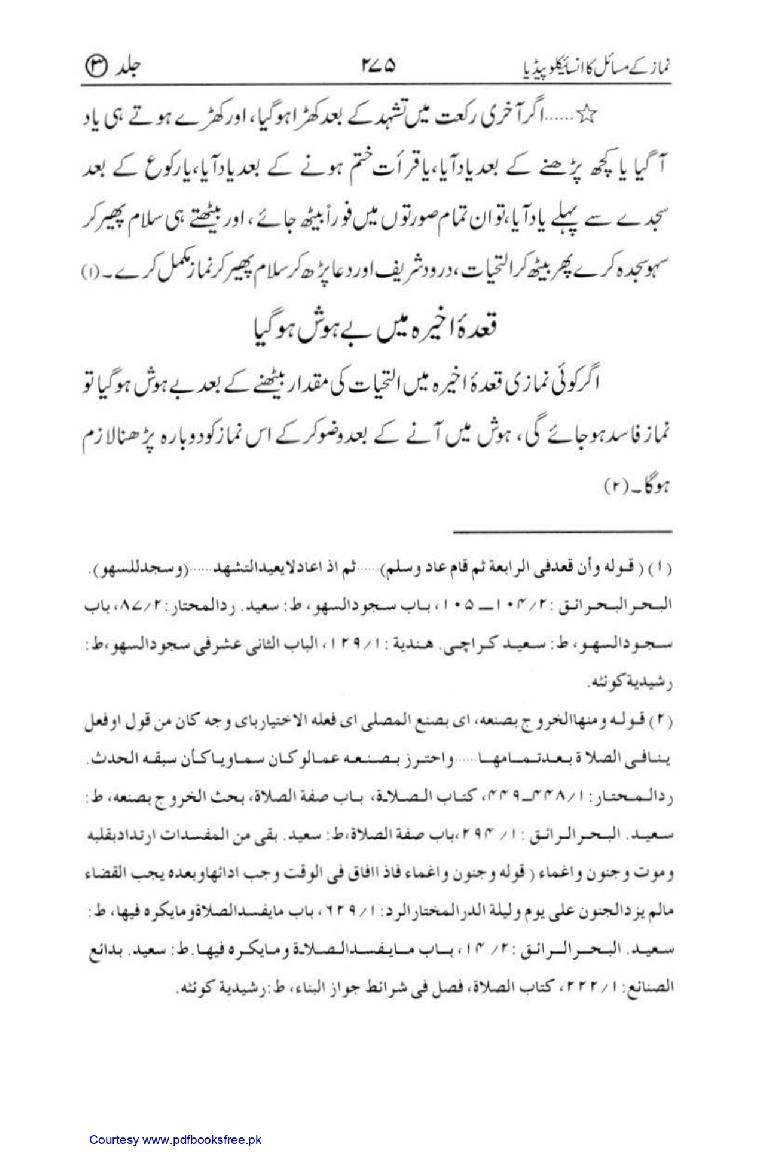 نماز کے مسائل کا انسائیکلوپیڈیا ۲۷۵ جلد ③
☆......اگر آخری رکعت میں تشہد کے بعد کھڑا ہوگیا، اور کھڑے ہوتے ہی یاد
آ گیا یا کچھ پڑھنے کے بعد یاد آیا، یا قرأت ختم ہونے کے بعد یاد آیا، یا رکوع کے بعد
سجدے سے پہلے یاد آیا، تو ان تمام صورتوں میں فوراً بیٹھ جائے، اور بیٹھتے ہی سلام پھیر کر
سہو سجدہ کرے پھر بیٹھ کر التحیات، درود شریف اور دعا پڑھ کر سلام پھیر کر نماز مکمل کرے۔(۱)
قعدۂ اخیرہ میں بے ہوش ہوگیا
اگر کوئی نمازی قعدۂ اخیرہ میں التحیات کی مقدار بیٹھنے کے بعد بے ہوش ہوگیا تو
نماز فاسد ہو جائے گی، ہوش میں آنے کے بعد وضو کر کے اس نماز کو دوبارہ پڑھنا لازم
ہوگا۔(۲)
(۱) (قوله وأن قعد فى الرابعة ثم قام عاد وسلم)......ثم اذ اعاد لا يعيد التشهد......(وسجد للسهو).
البحر البحر الرائق :۱۰۴/۲ــ۱۰۵، باب سجود السهو، ط: سعيد. رد المحتار:۸۷/۲، باب
سجود السهو، ط: سعيد كراچى. هندية :۱۲۹/۱، الباب الثانى عشر فى سجود السهو، ط:
رشيدية كوئٹه.
(۲) قوله ومنها الخروج بصنعه، اى بصنع المصلى اى فعله الاختيار باى وجه كان من قول او فعل
ينافى الصلاة بعد تمامها......واحترز بصنعه عما لو كان سماويا كأن سبقه الحدث.
رد المحتار: ۴۴۸/۱ــ۴۴۹، كتاب الصلاة، باب صفة الصلاة، بحث الخروج بصنعه، ط:
سعيد. البحر الرائق :۲۹۴/۱، باب صفة الصلاة، ط: سعيد. بقى من المفسدات ارتداد بقلبه
وموت وجنون واغماء ( قوله وجنون واغماء فاذ اافاق فى الوقت وجب ادائها وبعده يجب القضاء
مالم يزد الجنون على يوم وليلة الدر المختار الرد: ۶۲۹/۱، باب مايفسد الصلاة ومايكره فيها، ط:
سعيد. البحر الرائق :۱۴/۲، باب مايفسد الصلاة ومايكره فيها. ط: سعيد. بدائع
الصنائع: ۲۲۲/۱، كتاب الصلاة، فصل فى شرائط جواز البناء، ط: رشيدية كوئٹه.
Courtesy www.pdfbooksfree.pk